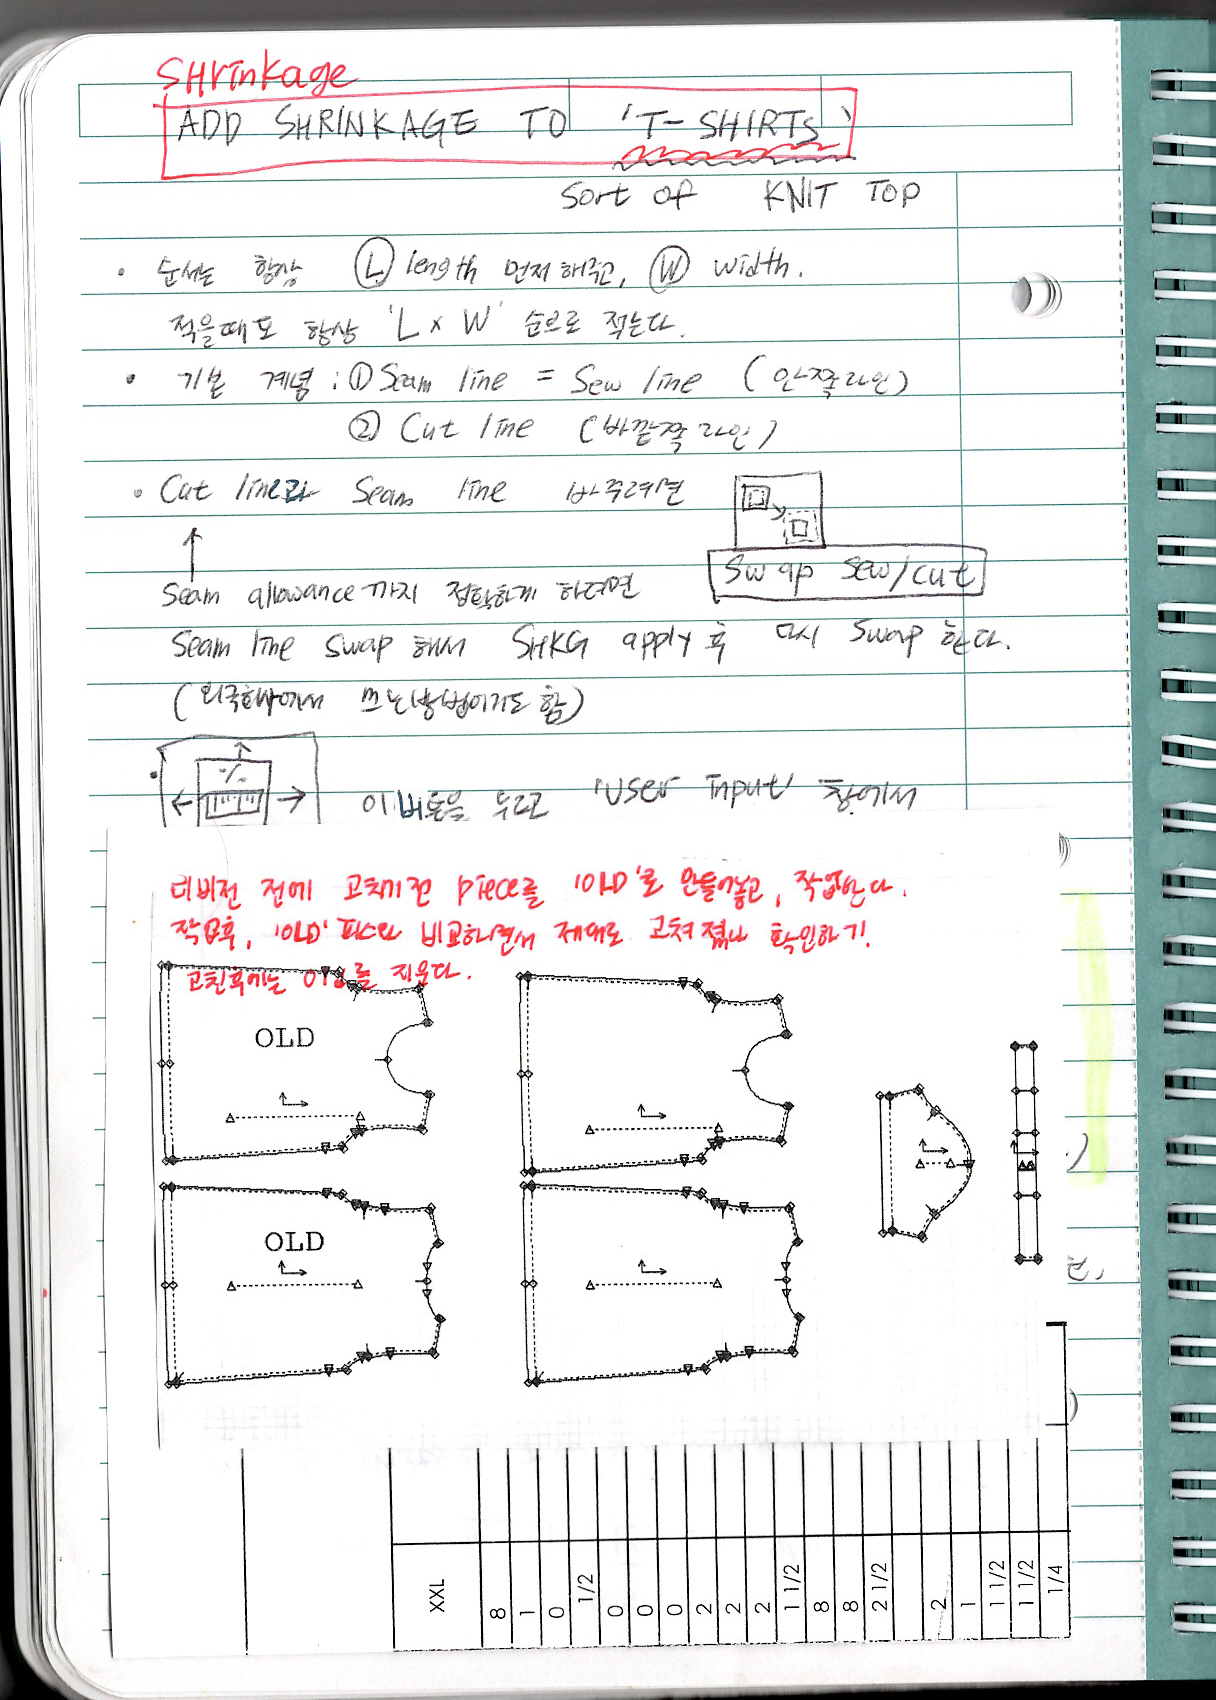 SHrinkage
ADD SHRINKAGE TO 'T-SHIRTS'
Sort of KNIT TOP
• 순서는 항상 Ⓛ length 먼저 해주고, Ⓦ width.
적을때도 항상 'L x W' 순으로 적는다.
• 기본 계념 : ① Seam line = Sew line (안쪽라인)
② Cut line (바깥쪽 라인)
• Cut line과 Seam line 바꾸려면
Swap sew/cut
↑
Seam allowance까지 정확하게 하려면
Seam line swap 해서 SHKG apply 후 다시 swap 한다.
(외국회사에서 쓰는방법이기도 함)
• % 이버튼을 누르고 'User Input' 창에서
리비전 전에 고치기전 piece를 'OLD'로 만들어놓고, 작업한다.
작업후, 'OLD' 피스와 비교하면서 제대로 고쳐졌나 확인하기.
고친후에는 이를 지운다.
OLD
OLD
XXL
8
1
0
1/2
0
0
0
2
2
2
1 1/2
8
8
2 1/2
2
1
1 1/2
1 1/2
1/4